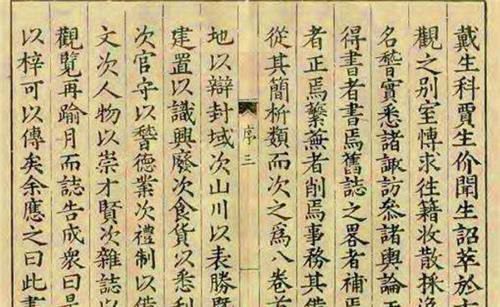 戴生科賈生价聞生詔萃於
觀之别室博求往籍收散採
名稽實悉諸諏訪參諸輿論
得書者書焉舊誌之畧者補焉
者正焉蘩蕪者削焉事務其備
從其簡析類而次之為八卷首
序三
地以辯封域次山川以表勝
建置以識興廢次食貨以悉利
次官守以稽德業次禮制以備
文次人物以崇才賢次雜誌以
觀覽再踰月而誌告成衆曰是
以梓可以傳矣余應之曰此書